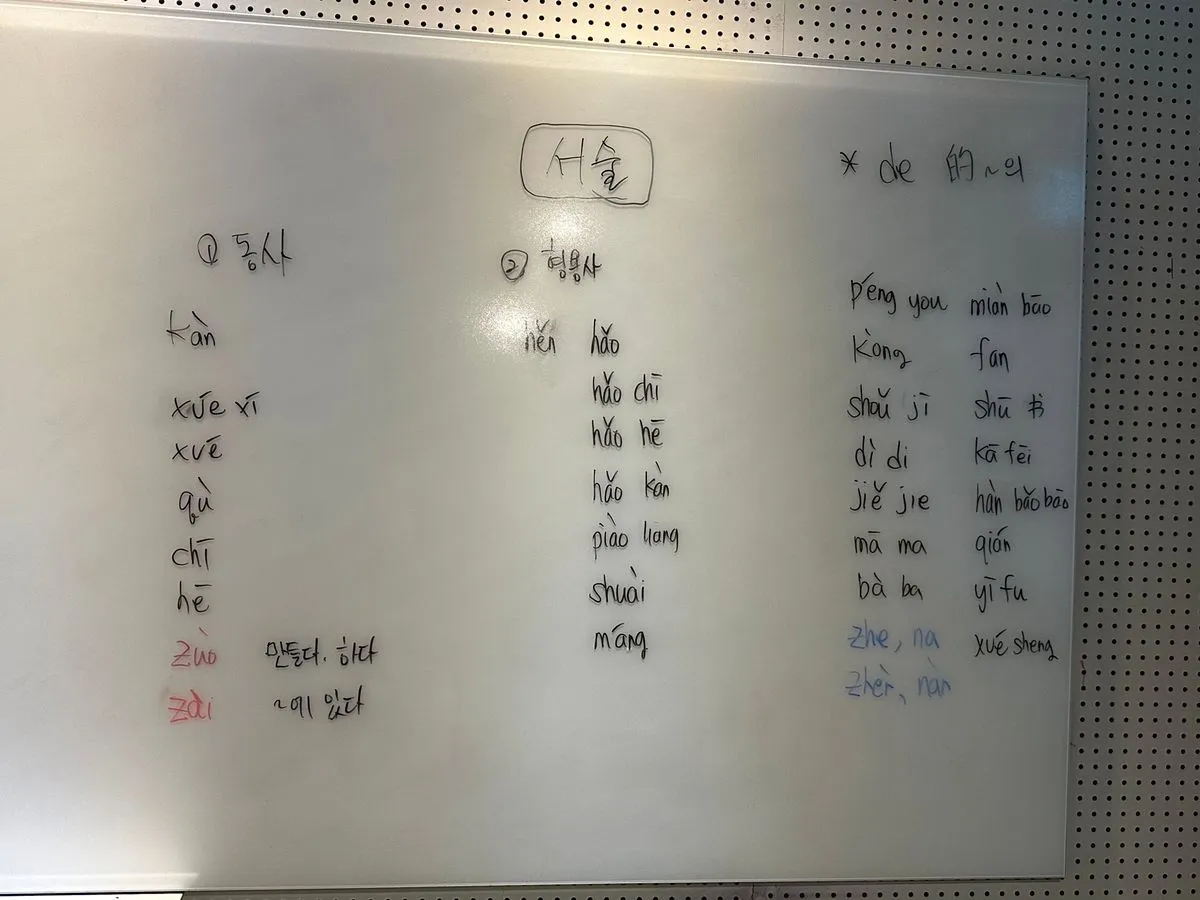 서술
* de 的 ~의
① 동사
kàn
xué xí
xué
qù
chī
hē
zuò 만들다. 하다
zài ~에 있다
② 형용사
hěn hǎo
hǎo chī
hǎo hē
hǎo kàn
piào liang
shuài
máng
péng you miàn bāo
kòng fan
shǒu jī shū 书
dì di kā fēi
jiě jie hàn bǎo bāo
mā ma qián
bà ba yī fu
zhe, na xué sheng
zhèr, nàr